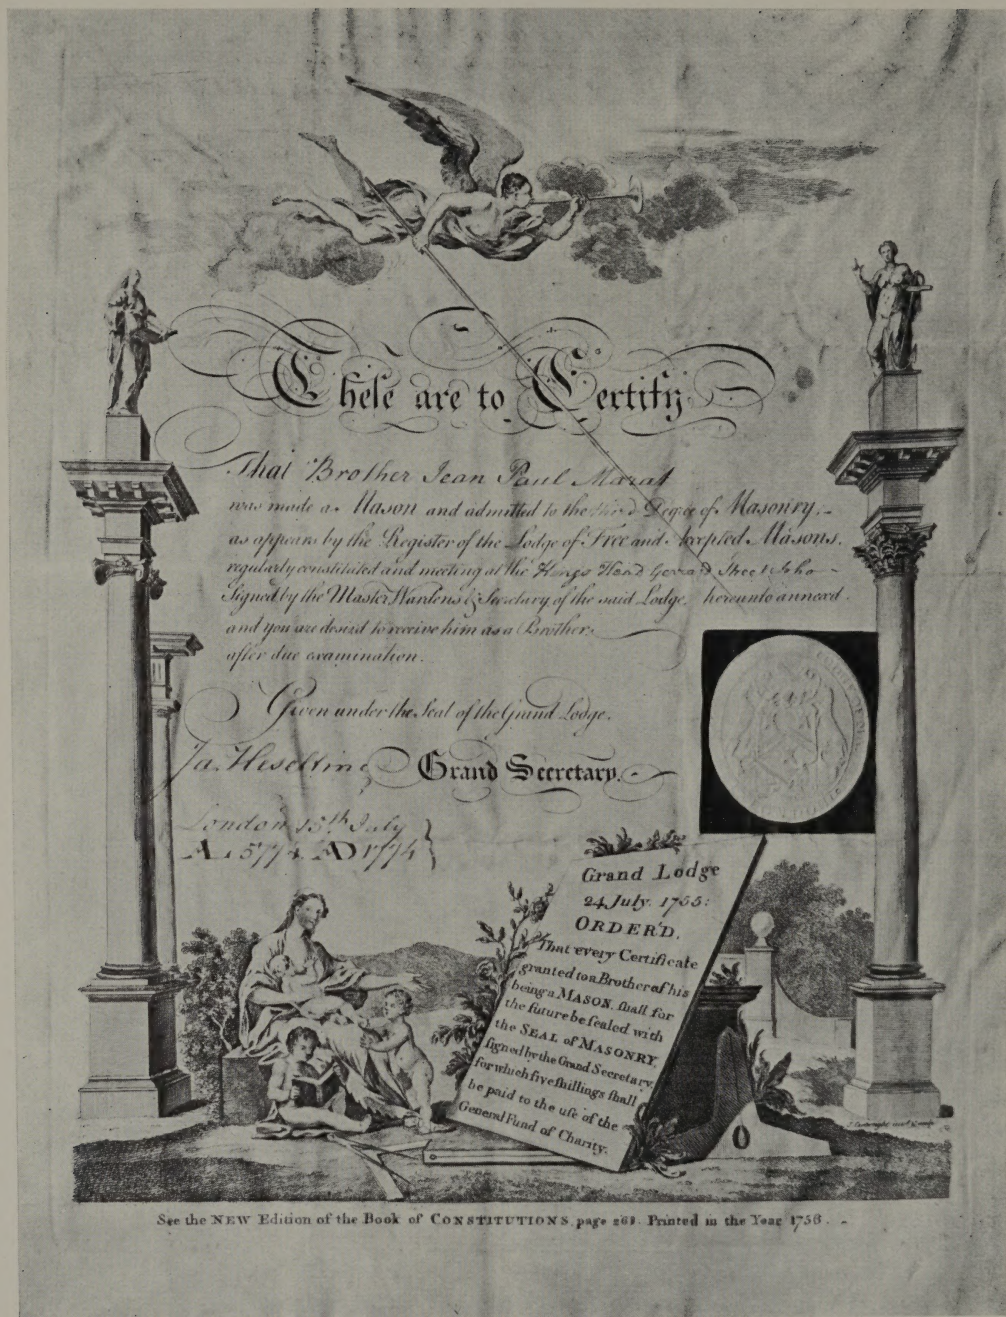 These are to Certify
That Brother Jean Paul Marat
was made a Mason and admitted to the third Degree of Masonry,
as appears by the Register of the Lodge of Free and Accepted Masons,
regularly constituted and meeting at the Kings Head Gerrard Street Soho
Signed by the Master Wardens & Secretary of the said Lodge, hereunto annexed
and you are desired to receive him as a Brother
after due examination.
Given under the Seal of the Grand Lodge.
Ja. Heseltine Grand Secretary.
London 15th July
AL 5774 AD 1774
Grand Lodge
24 July. 1755:
ORDER'D,
That every Certificate
granted to a Brother of his
being a MASON, shall for
the future be sealed with
the SEAL of MASONRY,
signed by the Grand Secretary,
for which five shillings shall
be paid to the use of the
General Fund of Charity.
See the NEW Edition of the Book of CONSTITUTIONS, page Printed in the Year 1756.